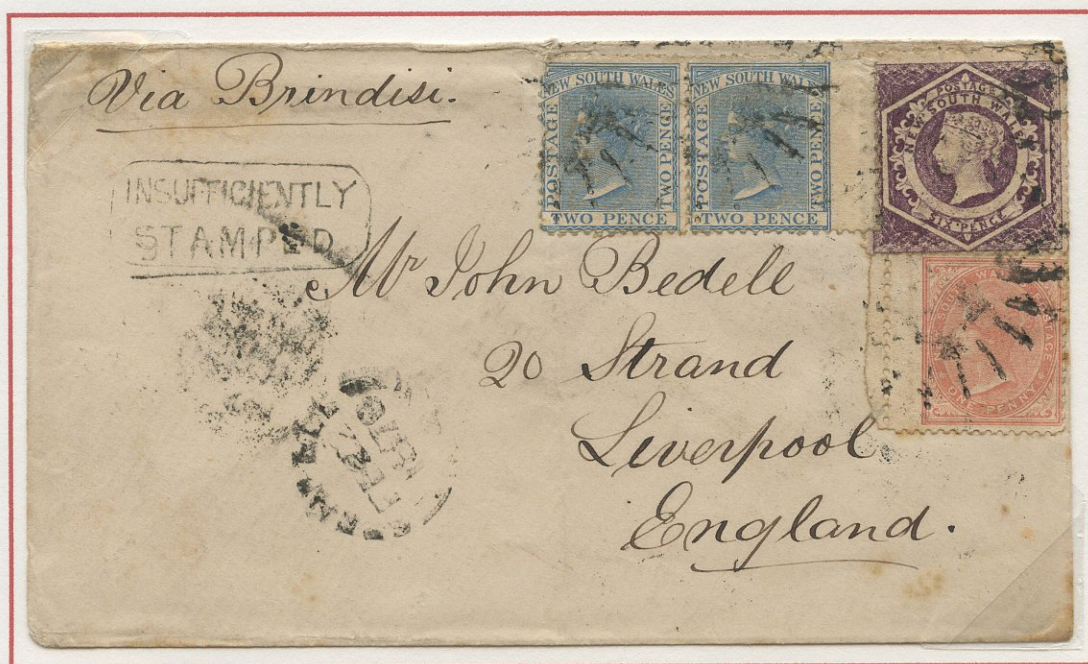 Via Brindisi.
INSUFFICIENTLY
STAMPED
NEW SOUTH WALES
POSTAGE
TWO PENCE
TWO PENCE
NEW SOUTH WALES
POSTAGE
TWO PENCE
TWO PENCE
POSTAGE
NEW SOUTH WALES
SIX PENCE
SOUTH WALES
POSTAGE
ONE PENNY
Mr John Bedell
20 Strand
Liverpool
England.